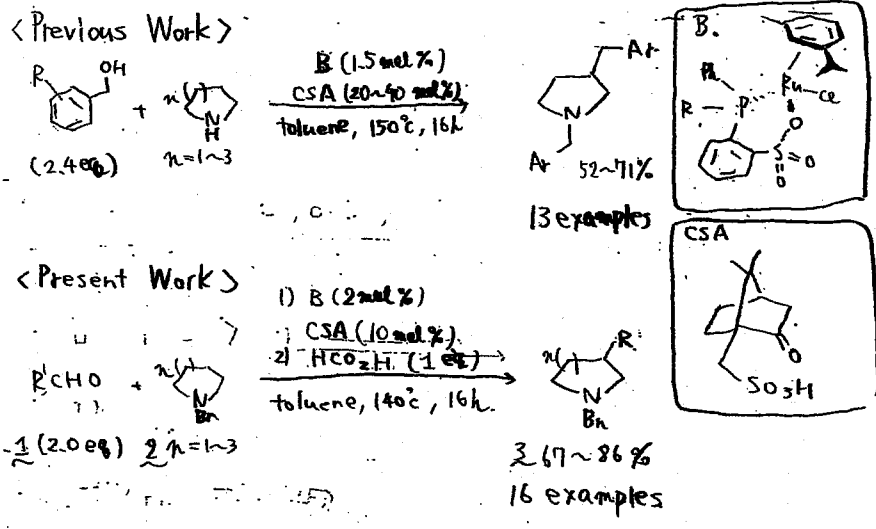 <Previous Work>
R
OH
+
n( )
N
H
(2.4eq)
n=1~3
B (1.5 mol%)
CSA (20~40 mol%)
toluene, 150℃, 16h
Ar
N
Ar
52~71%
13 examples
B.
Ph
R
P
Ru
Cl
O
S
O
O
CSA
O
SO3H
<Present Work>
R'CHO
+
n( )
N
Bn
1 (2.0 eq)
2 n=1~3
1) B (2mol%)
CSA (10 mol%)
2) HCO2H (1 eq)
toluene, 140℃, 16h.
n( )
R'
N
Bn
3 67~86%
16 examples